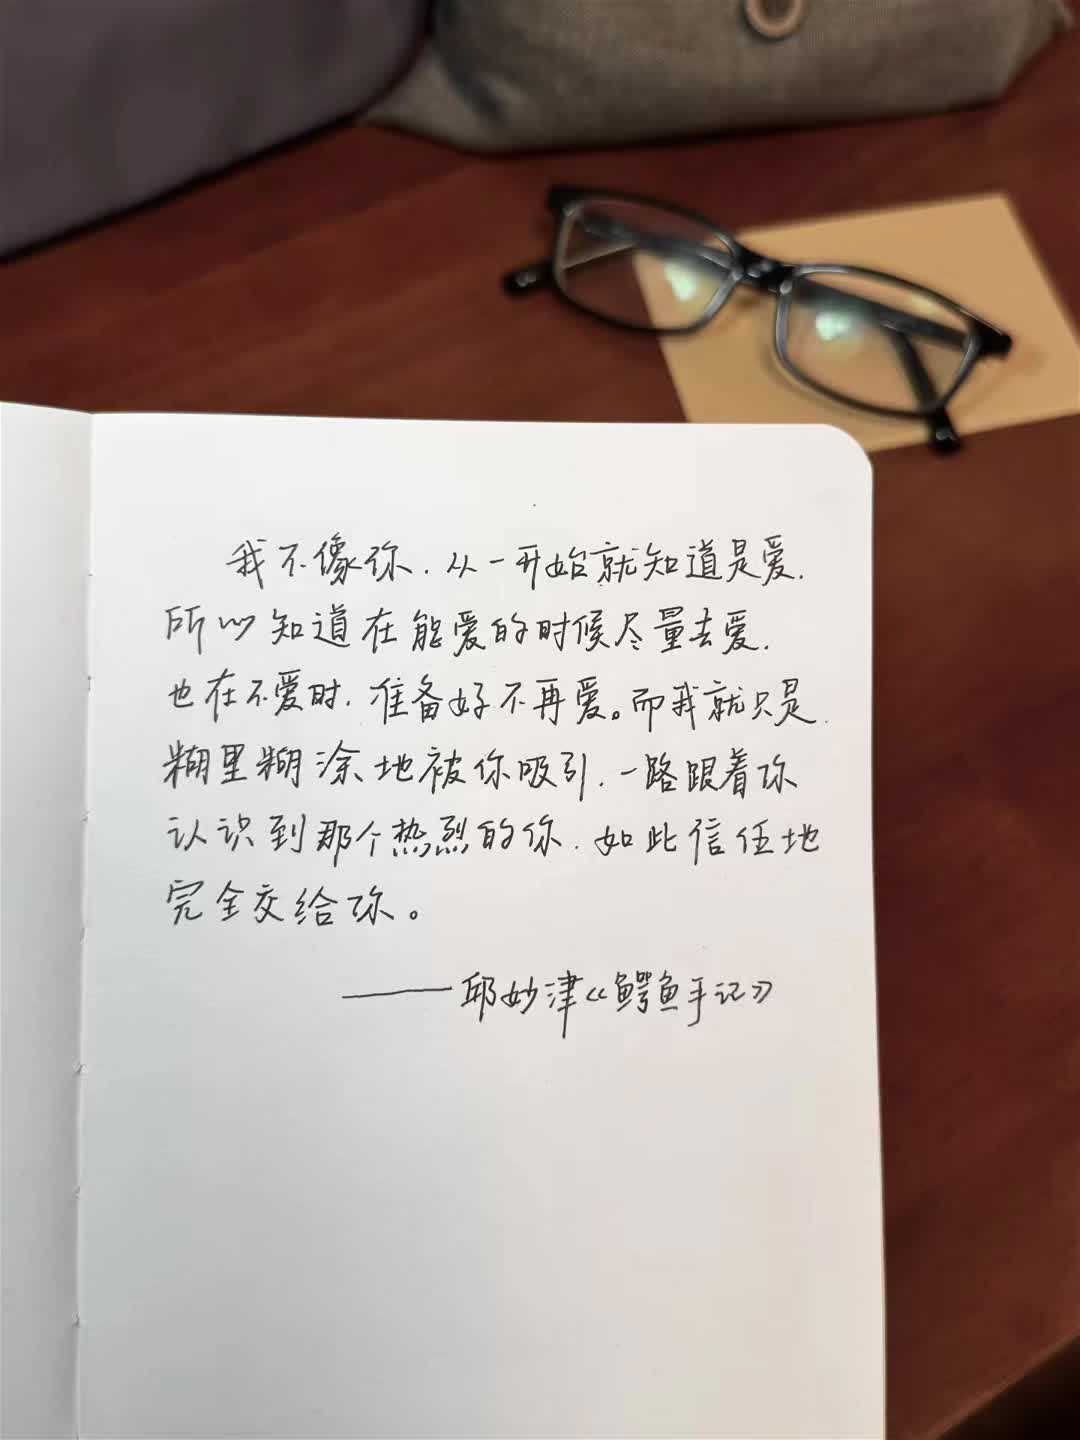 我不像你，从一开始就知道是爱，
所以知道在能爱的时候尽量去爱，
也在不爱时，准备好不再爱。而我就只是
糊里糊涂地被你吸引，一路跟着你
认识到那个热烈的你，如此信任地
完全交给你。
——邱妙津《鳄鱼手记》